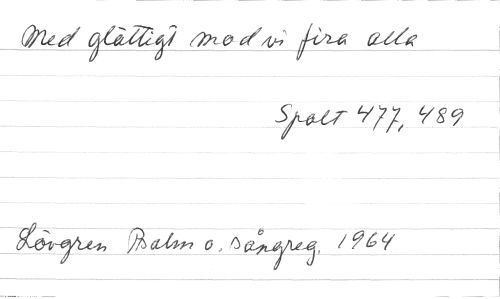 Med glättigt mod vi fira alla
Spalt 477, 489
Lövgren Psalm o. sångreg. 1964